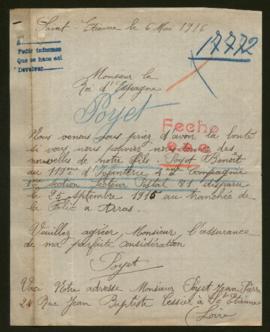 Saint-Etienne le 6 Mai 1916
17772
A
Pedir informes
Que se hace así
Devolver
Monsieur le
Roi d'Espagne
Poyet
Fecho
Nous venons vous priez d'avoir la bonté
si vous nous pouvez
nouvelles de notre fils Poyet Benoit
du Infanterie 4me Compagnie
1re Section Secteur Postal 81 disparu
le 25 Septembre 1915 au tranchée de
à Arras.
Veuillez agréer, Monsieur l'assurance
de ma parfaite considération
Poyet
Voici Notre adresse Monsieur Poyet Jean Pierre
24 Rue Jean Baptiste Tessier à St Etienne
Loire